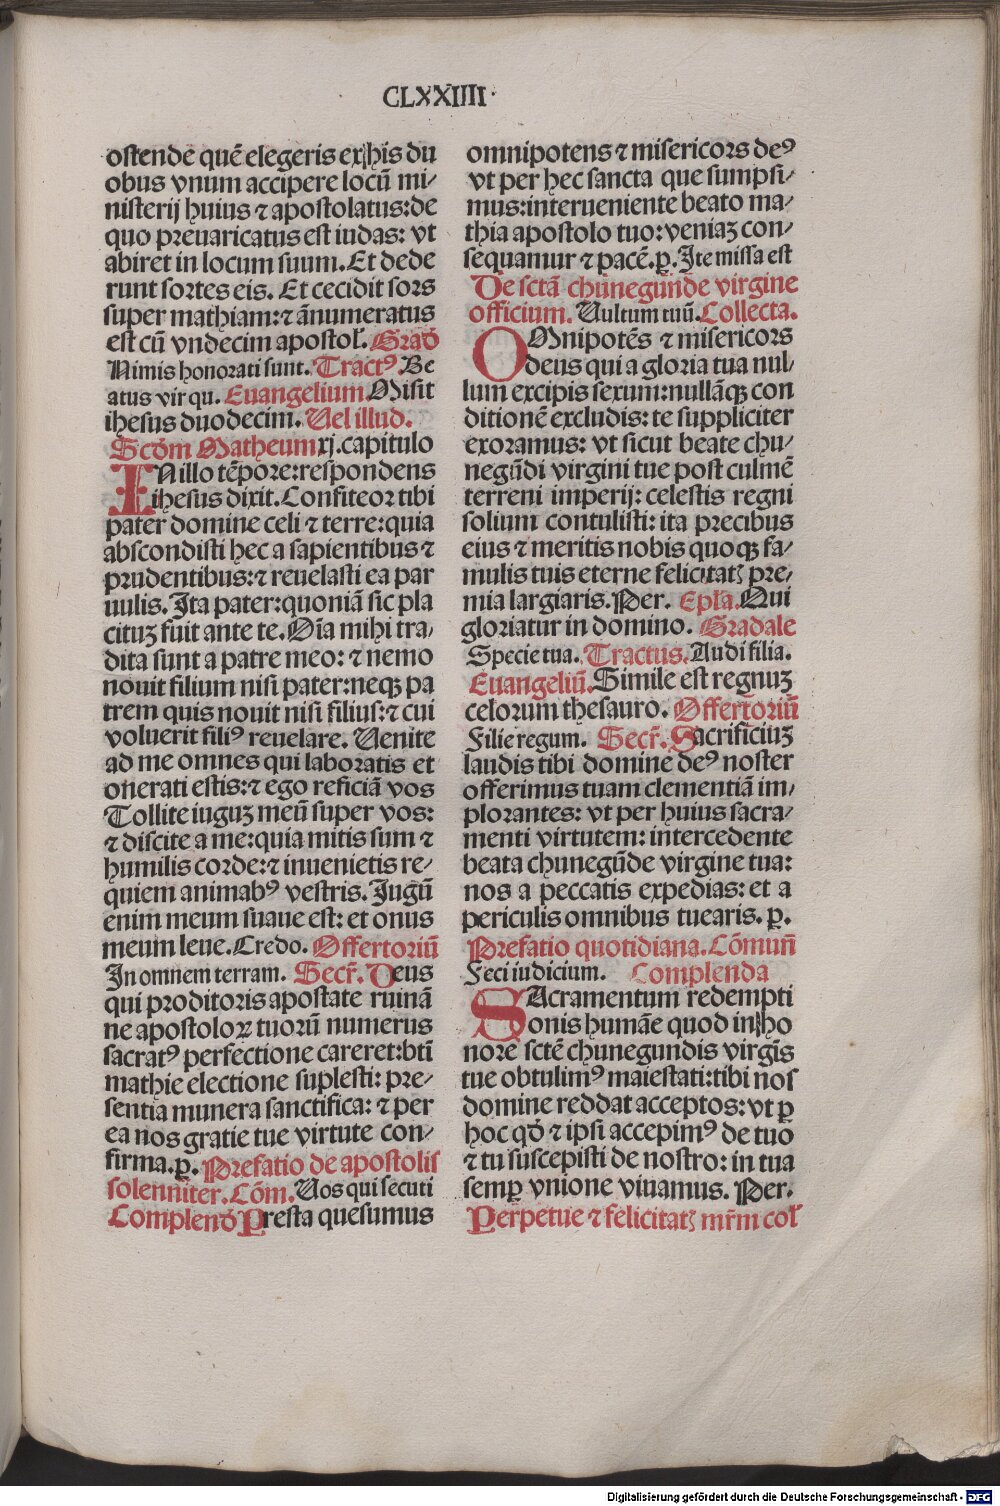 CLXXIIII·
ostende quē elegeris ex his du
obus vnum accipere locū mi⸗
nisterij huius ⁊ apostolatus: de
quo preuaricatus est iudas: vt
abiret in locum suum. Et dede
runt sortes eis. Et cecidit sors
super mathiam: ⁊ ānumeratus
est cū vndecim apostoł. Grad̄
Nimis honorati sunt. Tractꝰ. Be
atus vir qu. Euangelium Misit
ihesus duodecim. Vel illud.
Scd̄m Matheum xj. capitulo
IN illo tēpore: respondens
ihesus dixit. Confiteor tibi
pater domine celi ⁊ terre: quia
abscondisti hec a sapientibus ⁊
prudentibus: ⁊ reuelasti ea par
uulis. Ita pater: quoniā sic pla
cituꝫ fuit ante te. Oīa mihi tra⸗
dita sunt a patre meo: ⁊ nemo
nouit filium nisi pater: neqꝫ pa
trem quis nouit nisi filius: ⁊ cui
voluerit filiꝰ reuelare. Venite
ad me omnes qui laboratis et
onerati estis: ⁊ ego reficiā vos
Tollite iuguꝫ meū super vos:
⁊ discite a me: quia mitis sum ⁊
humilis corde: ⁊ inuenietis re⸗
quiem animabꝰ vestris. Jugū
enim meum suaue est: et onus
meum leue. Credo. Offertoriū
In omnem terram. Secr̄. Deus
qui proditoris apostate ruinā
ne apostoloꝝ tuorū numerus
sacratꝰ perfectione careret: bt̄i
mathie electione suplesti: pre⸗
sentia munera sanctifica: ⁊ per
ea nos gratie tue virtute con⸗
firma. ꝑ. Prefatio de apostolis
solenniter. Cōm. Vos qui secuti
Complend̄ Presta quesumus
omnipotens ⁊ misericors deꝰ
vt per hec sancta que sumpsi⸗
mus: interueniente beato ma⸗
thia apostolo tuo: veniaꝫ con⸗
sequamur ⁊ pacē. ꝑ. Ite missa est
De sctā chunegūnde virgine
officium. Vultum tuū. Collecta.
OMnipotēs ⁊ misericors
deus qui a gloria tua nul⸗
lum excipis sexum: nullāqꝫ con
ditionē excludis: te suppliciter
exoramus: vt sicut beate chu⸗
negūdi virgini tue post culmē
terreni imperij: celestis regni
solium contulisti: ita precibus
eius ⁊ meritis nobis quoqꝫ fa⸗
mulis tuis eterne felicitatꝭ pre⸗
mia largiaris. Per. Epła. Qui
gloriatur in domino. Gradale
Specie tua. Tractus. Audi filia.
Euangeliū. Simile est regnuꝫ
celorum thesauro. Offertoriū
Filie regum. Secr̄. Sacrificiuꝫ
laudis tibi domine deꝰ noster
offerimus tuam clementiā im⸗
plorantes: vt per huius sacra⸗
menti virtutem: intercedente
beata chunegūde virgine tua:
nos a peccatis expedias: et a
periculis omnibus tuearis. ꝑ.
Prefatio quotidiana. Cōmuñ
Feci iudicium. Complenda
SAcramentum redempti
onis humāe quod in ho
nore sctē chunegundis virgīs
tue obtulimꝰ maiestati: tibi nos
domine reddat acceptos: vt ꝑ
hoc qd̄ ⁊ ipsi accepimꝰ de tuo
⁊ tu suscepisti de nostro: in tua
semꝑ vnione viuamus. Per.
Perpetue ⁊ felicitatꝭ mr̄m coł
Digitalisierung gefördert durch die Deutsche Forschungsgemeinschaft - DFG